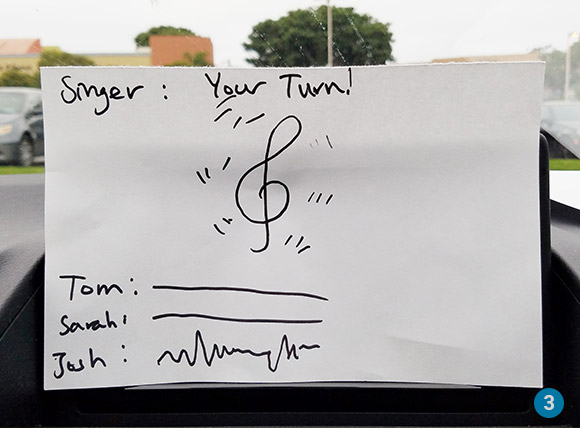 Singer : Your Turn!
Tom:
Sarah:
Josh :
3